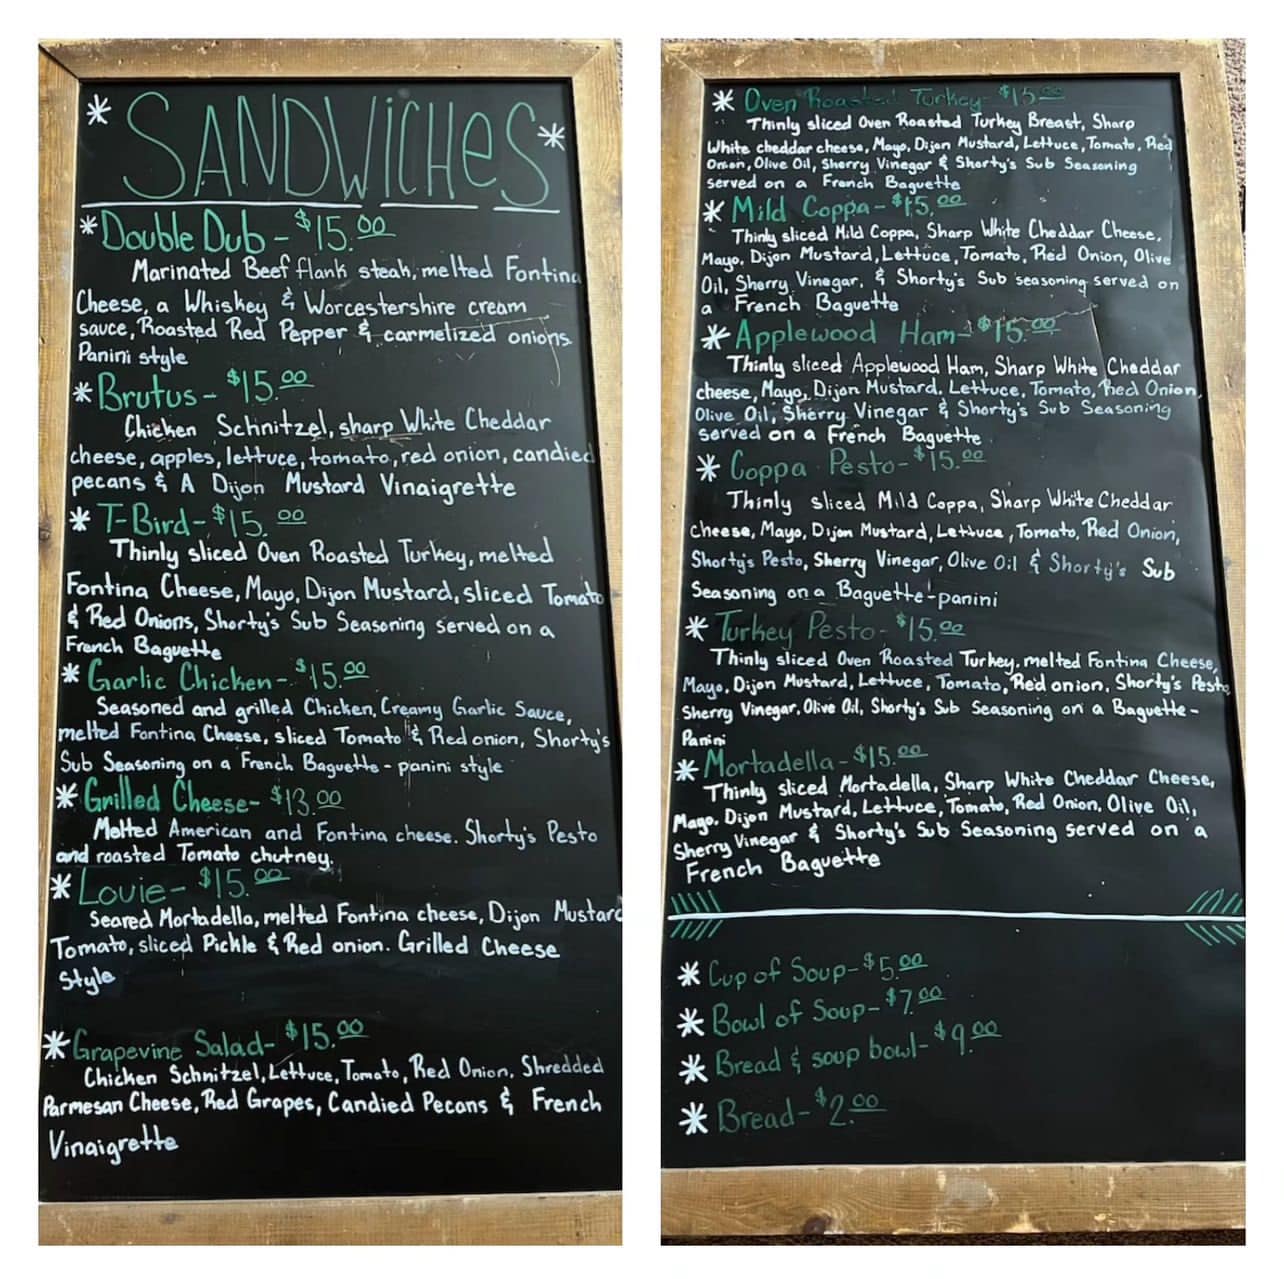 * SANDWICHES *
* Double Dub - $15.00
Marinated Beef flank steak, melted Fontina
Cheese, a Whiskey & Worcestershire cream
sauce, Roasted Red Pepper & carmelized onions.
Panini style
* Brutus - $15.00
Chicken Schnitzel, sharp White Cheddar
cheese, apples, lettuce, tomato, red onion, candied
pecans & A Dijon Mustard Vinaigrette
* T-Bird - $15.00
Thinly sliced Oven Roasted Turkey, melted
Fontina Cheese, Mayo, Dijon Mustard, sliced Tomato
& Red Onions, Shorty's Sub Seasoning served on a
French Baguette
* Garlic Chicken - $15.00
Seasoned and grilled Chicken, Creamy Garlic Sauce,
melted Fontina Cheese, sliced Tomato & Red onion, Shorty's
Sub Seasoning on a French Baguette - panini style
* Grilled Cheese - $13.00
Melted American and Fontina cheese. Shorty's Pesto
and roasted Tomato chutney.
* Louie - $15.00
Seared Mortadella, melted Fontina cheese, Dijon Mustard
Tomato, sliced Pickle & Red onion. Grilled Cheese
Style
* Grapevine Salad - $15.00
Chicken Schnitzel, Lettuce, Tomato, Red Onion, Shredded
Parmesan Cheese, Red Grapes, Candied Pecans & French
Vinaigrette
* Oven Roasted Turkey - $15.00
Thinly sliced Oven Roasted Turkey Breast, Sharp
White cheddar cheese, Mayo, Dijon Mustard, Lettuce, Tomato, Red
Onion, Olive Oil, Sherry Vinegar & Shorty's Sub Seasoning
served on a French Baguette
* Mild Coppa - $15.00
Thinly sliced Mild Coppa, Sharp White Cheddar Cheese,
Mayo, Dijon Mustard, Lettuce, Tomato, Red Onion, Olive
Oil, Sherry Vinegar, & Shorty's Sub seasoning served on
a French Baguette
* Applewood Ham - $15.00
Thinly sliced Applewood Ham, Sharp White Cheddar
cheese, Mayo, Dijon Mustard, Lettuce, Tomato, Red Onion,
Olive Oil, Sherry Vinegar & Shorty's Sub Seasoning
served on a French Baguette
* Coppa Pesto - $15.00
Thinly sliced Mild Coppa, Sharp White Cheddar
cheese, Mayo, Dijon Mustard, Lettuce, Tomato, Red Onion,
Shorty's Pesto, Sherry Vinegar, Olive Oil & Shorty's Sub
Seasoning on a Baguette-panini
* Turkey Pesto - $15.00
Thinly sliced Oven Roasted Turkey, melted Fontina Cheese,
Mayo, Dijon Mustard, Lettuce, Tomato, Red onion, Shorty's Pesto
Sherry Vinegar, Olive Oil, Shorty's Sub Seasoning on a Baguette -
Panini
* Mortadella - $15.00
Thinly sliced Mortadella, Sharp White Cheddar Cheese,
Mayo, Dijon Mustard, Lettuce, Tomato, Red Onion, Olive Oil,
Sherry Vinegar & Shorty's Sub Seasoning served on a
French Baguette
* Cup of Soup - $5.00
* Bowl of Soup - $7.00
* Bread & soup bowl - $9.00
* Bread - $2.00